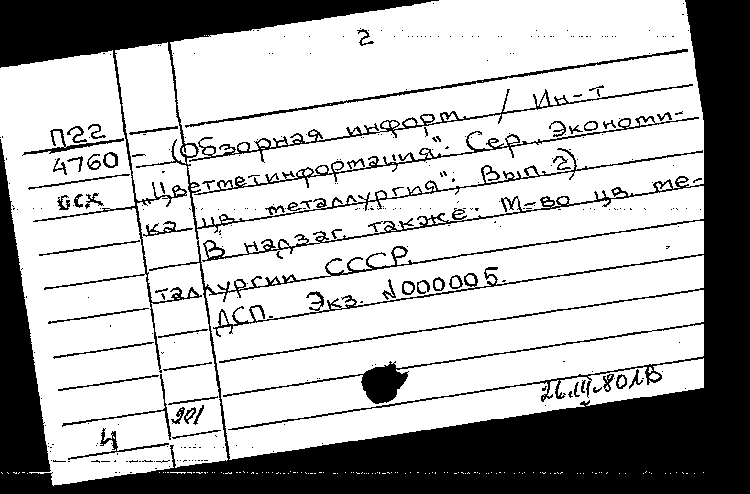 2
П22
4760 - (Обзорная информ. / Ин-т
осх „Цветметинформация": Сер. „Экономи-
ка цв. металлургия"; Вып. 2).
В надзаг. также: М-во цв. ме-
таллургии СССР.
ДСП. Экз. N000005.
26.III.80
4